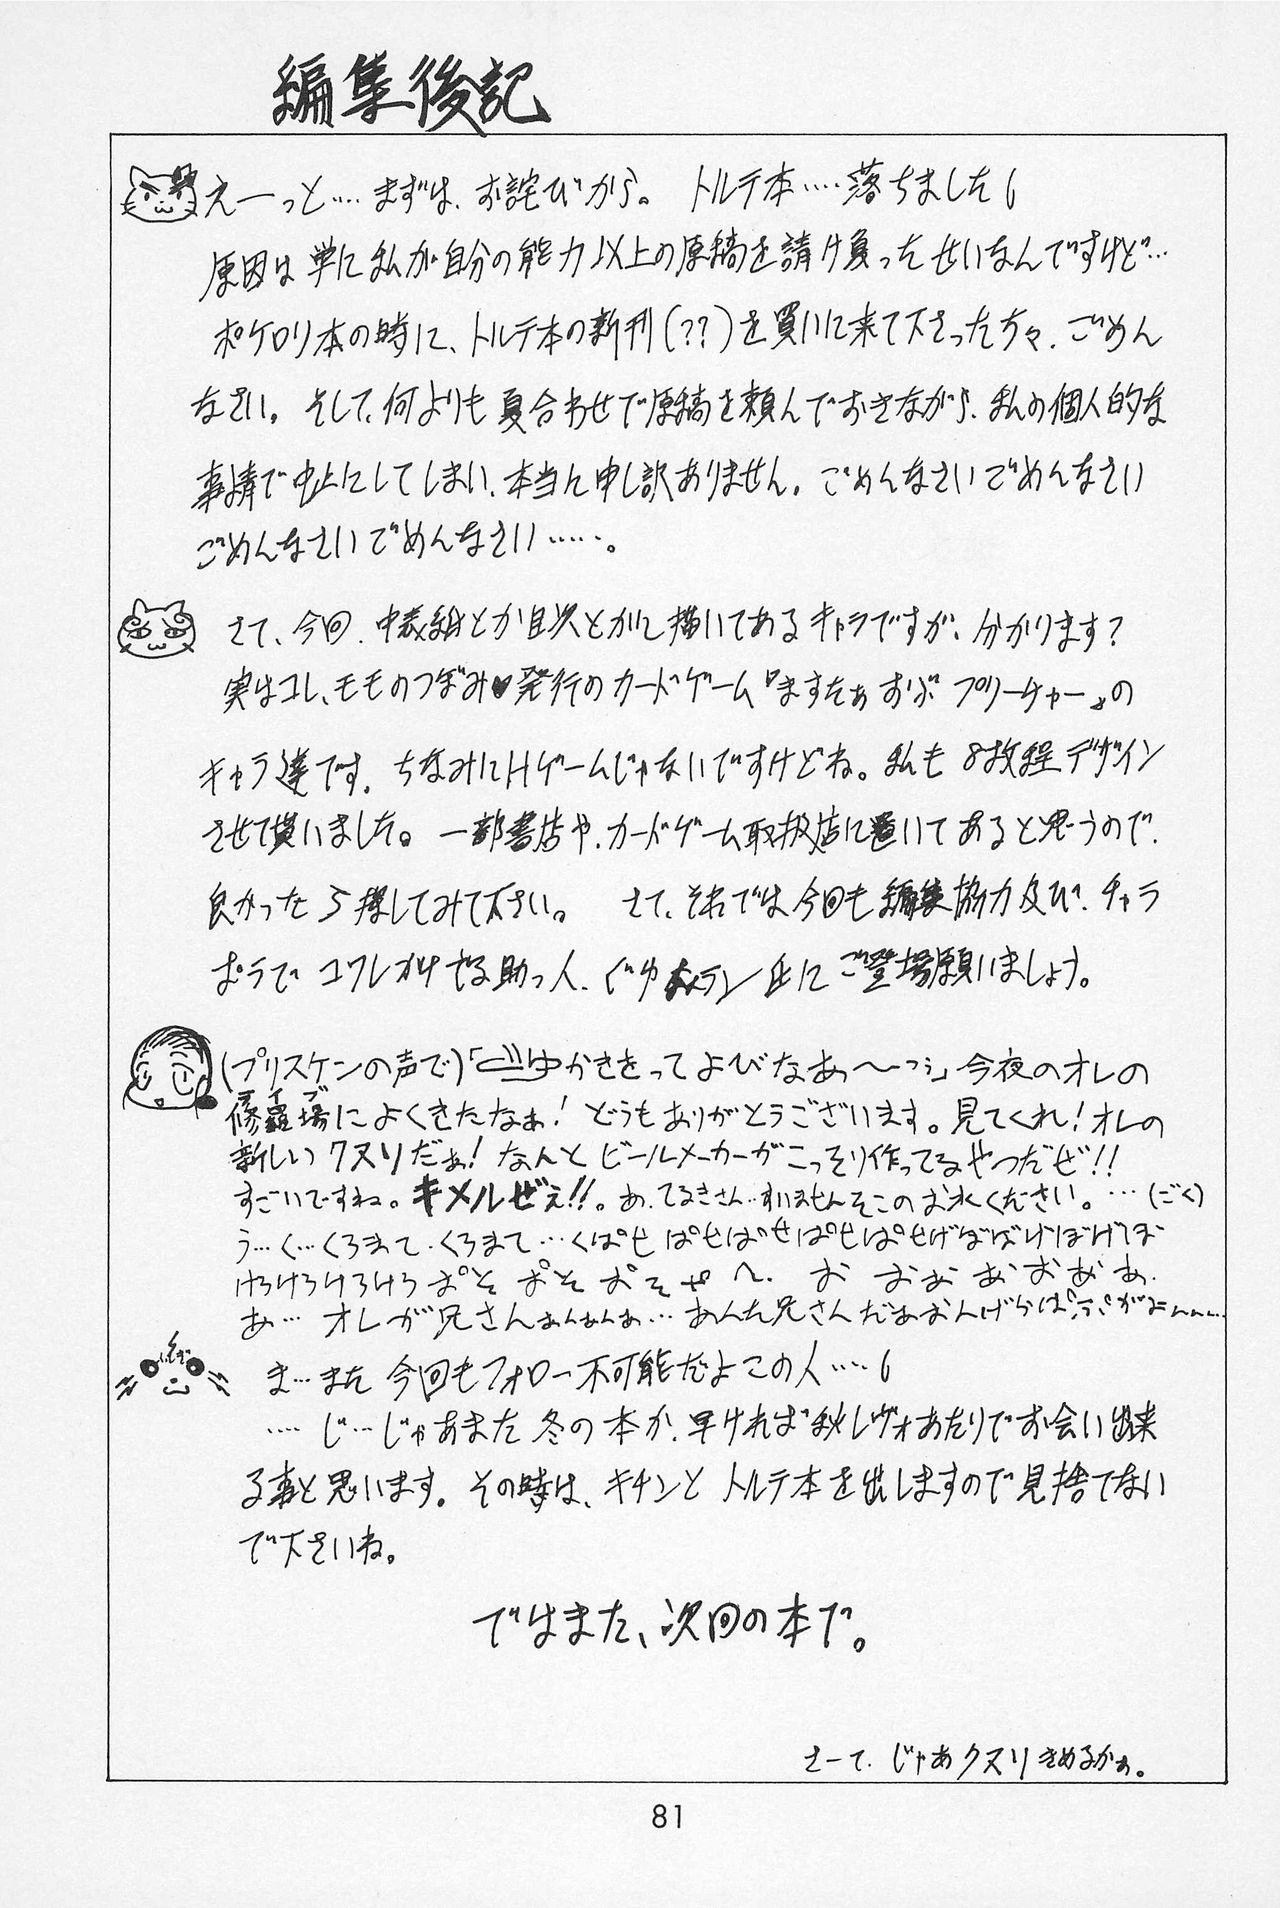 編集後記
えーっと…まずは、お詫びから。 トルテ本‥‥落ちました
原因は単に私が自分の能力以上の原稿を請け負ったせいなんですけど…
ポケロリ本の時に、トルテ本の新刊(??)を買いに来て下さった方々、ごめん
なさい。そして、何よりも夏合わせで原稿を頼んでおきながら、私の個人的な
事情で中止にしてしまい、本当に申し訳ありません。ごめんなさいごめんなさい
ごめんなさいごめんなさい‥‥‥。
さて、今回、中表紙とか目次とかに描いてあるキャラですが、分かります?
実はコレ、モモのつぼみ♥発行のカードゲーム『ますたぁおぶ プリーチャー』の
キャラ達です。ちなみにHゲームじゃないですけどね。私も8枚程デザイン
させて貰いました。一部書店や、カードゲーム取扱店に置いてあると思うので、
良かったら探してみて下さい。 さて、それでは今回も編集協力及び、チャラ
ポラで コワレかけてる助っ人、ぐゆ テン氏にご登場願いましょう。
(プリスケンの声で)「 かきをってよびなあ〜っ」今夜のオレの
修羅場ライブによくきたなぁ!どうもありがとうございます。見てくれ!オレの
新しいクスリだぁ!なんとビールメーカーがこっそり作ってるやつだぜ!!
すごいですね。キメルぜぇ!!。あ、てるきさん‥すいませんそこのお水ください。…(ごく)
う…く…くろまて、くろまて…くぱせぱせばせぱせぱせげぼぼげぼげぼ
けろけろけろけろ おそ おそ おそ へ、お おおおおああ、
あ… オレが兄さんぁんぁんぁ…あんた兄さんだぁおんげらぱ がよ〜…
ま…また今回もフォロー不可能だよこの人‥‥
‥‥じ…じゃあまた冬の本か、早ければ秋レヴォあたりでお会い出来
る事と思います。その時は、キチンとトルテ本を出しますので見捨てない
で下さいね。
ではまた、次回の本で。
さーて、じゃあクスリきめるかぁ。
81